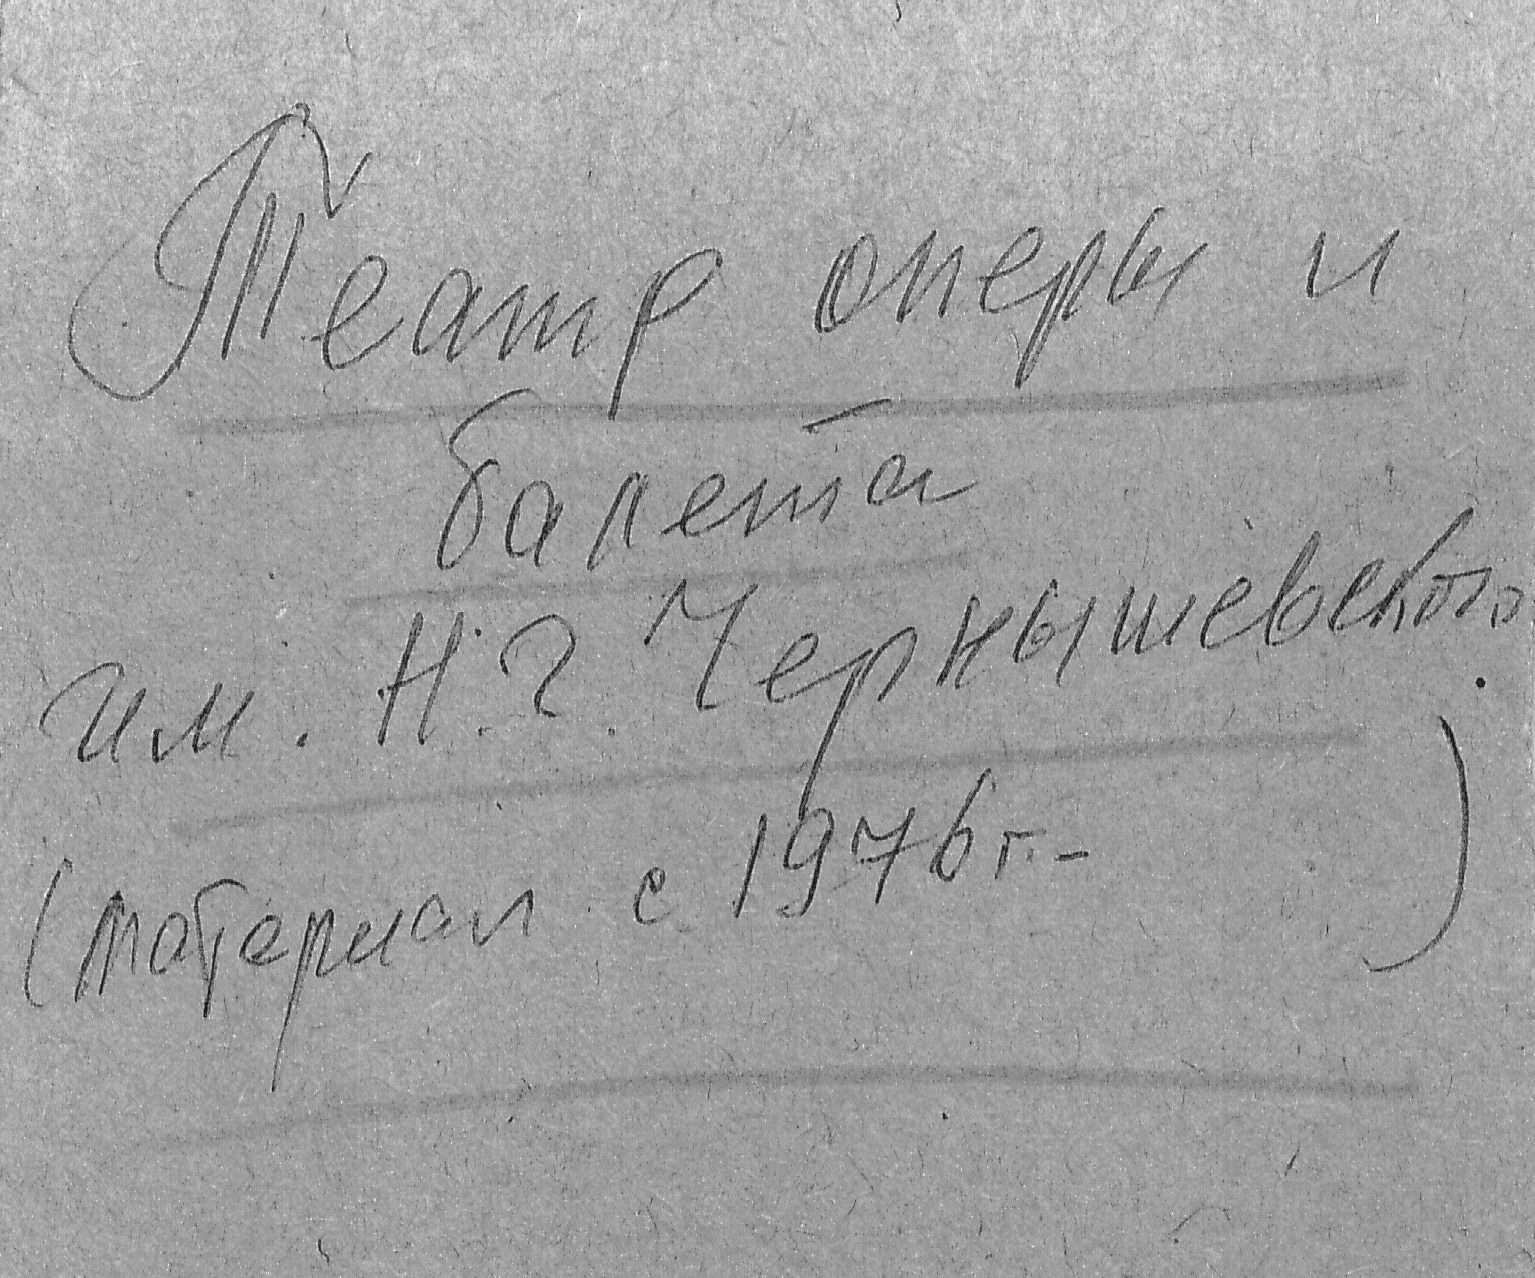 Театр оперы и
балета
им. Н.Г. Чернышевского.
(материал с 1976г.- )